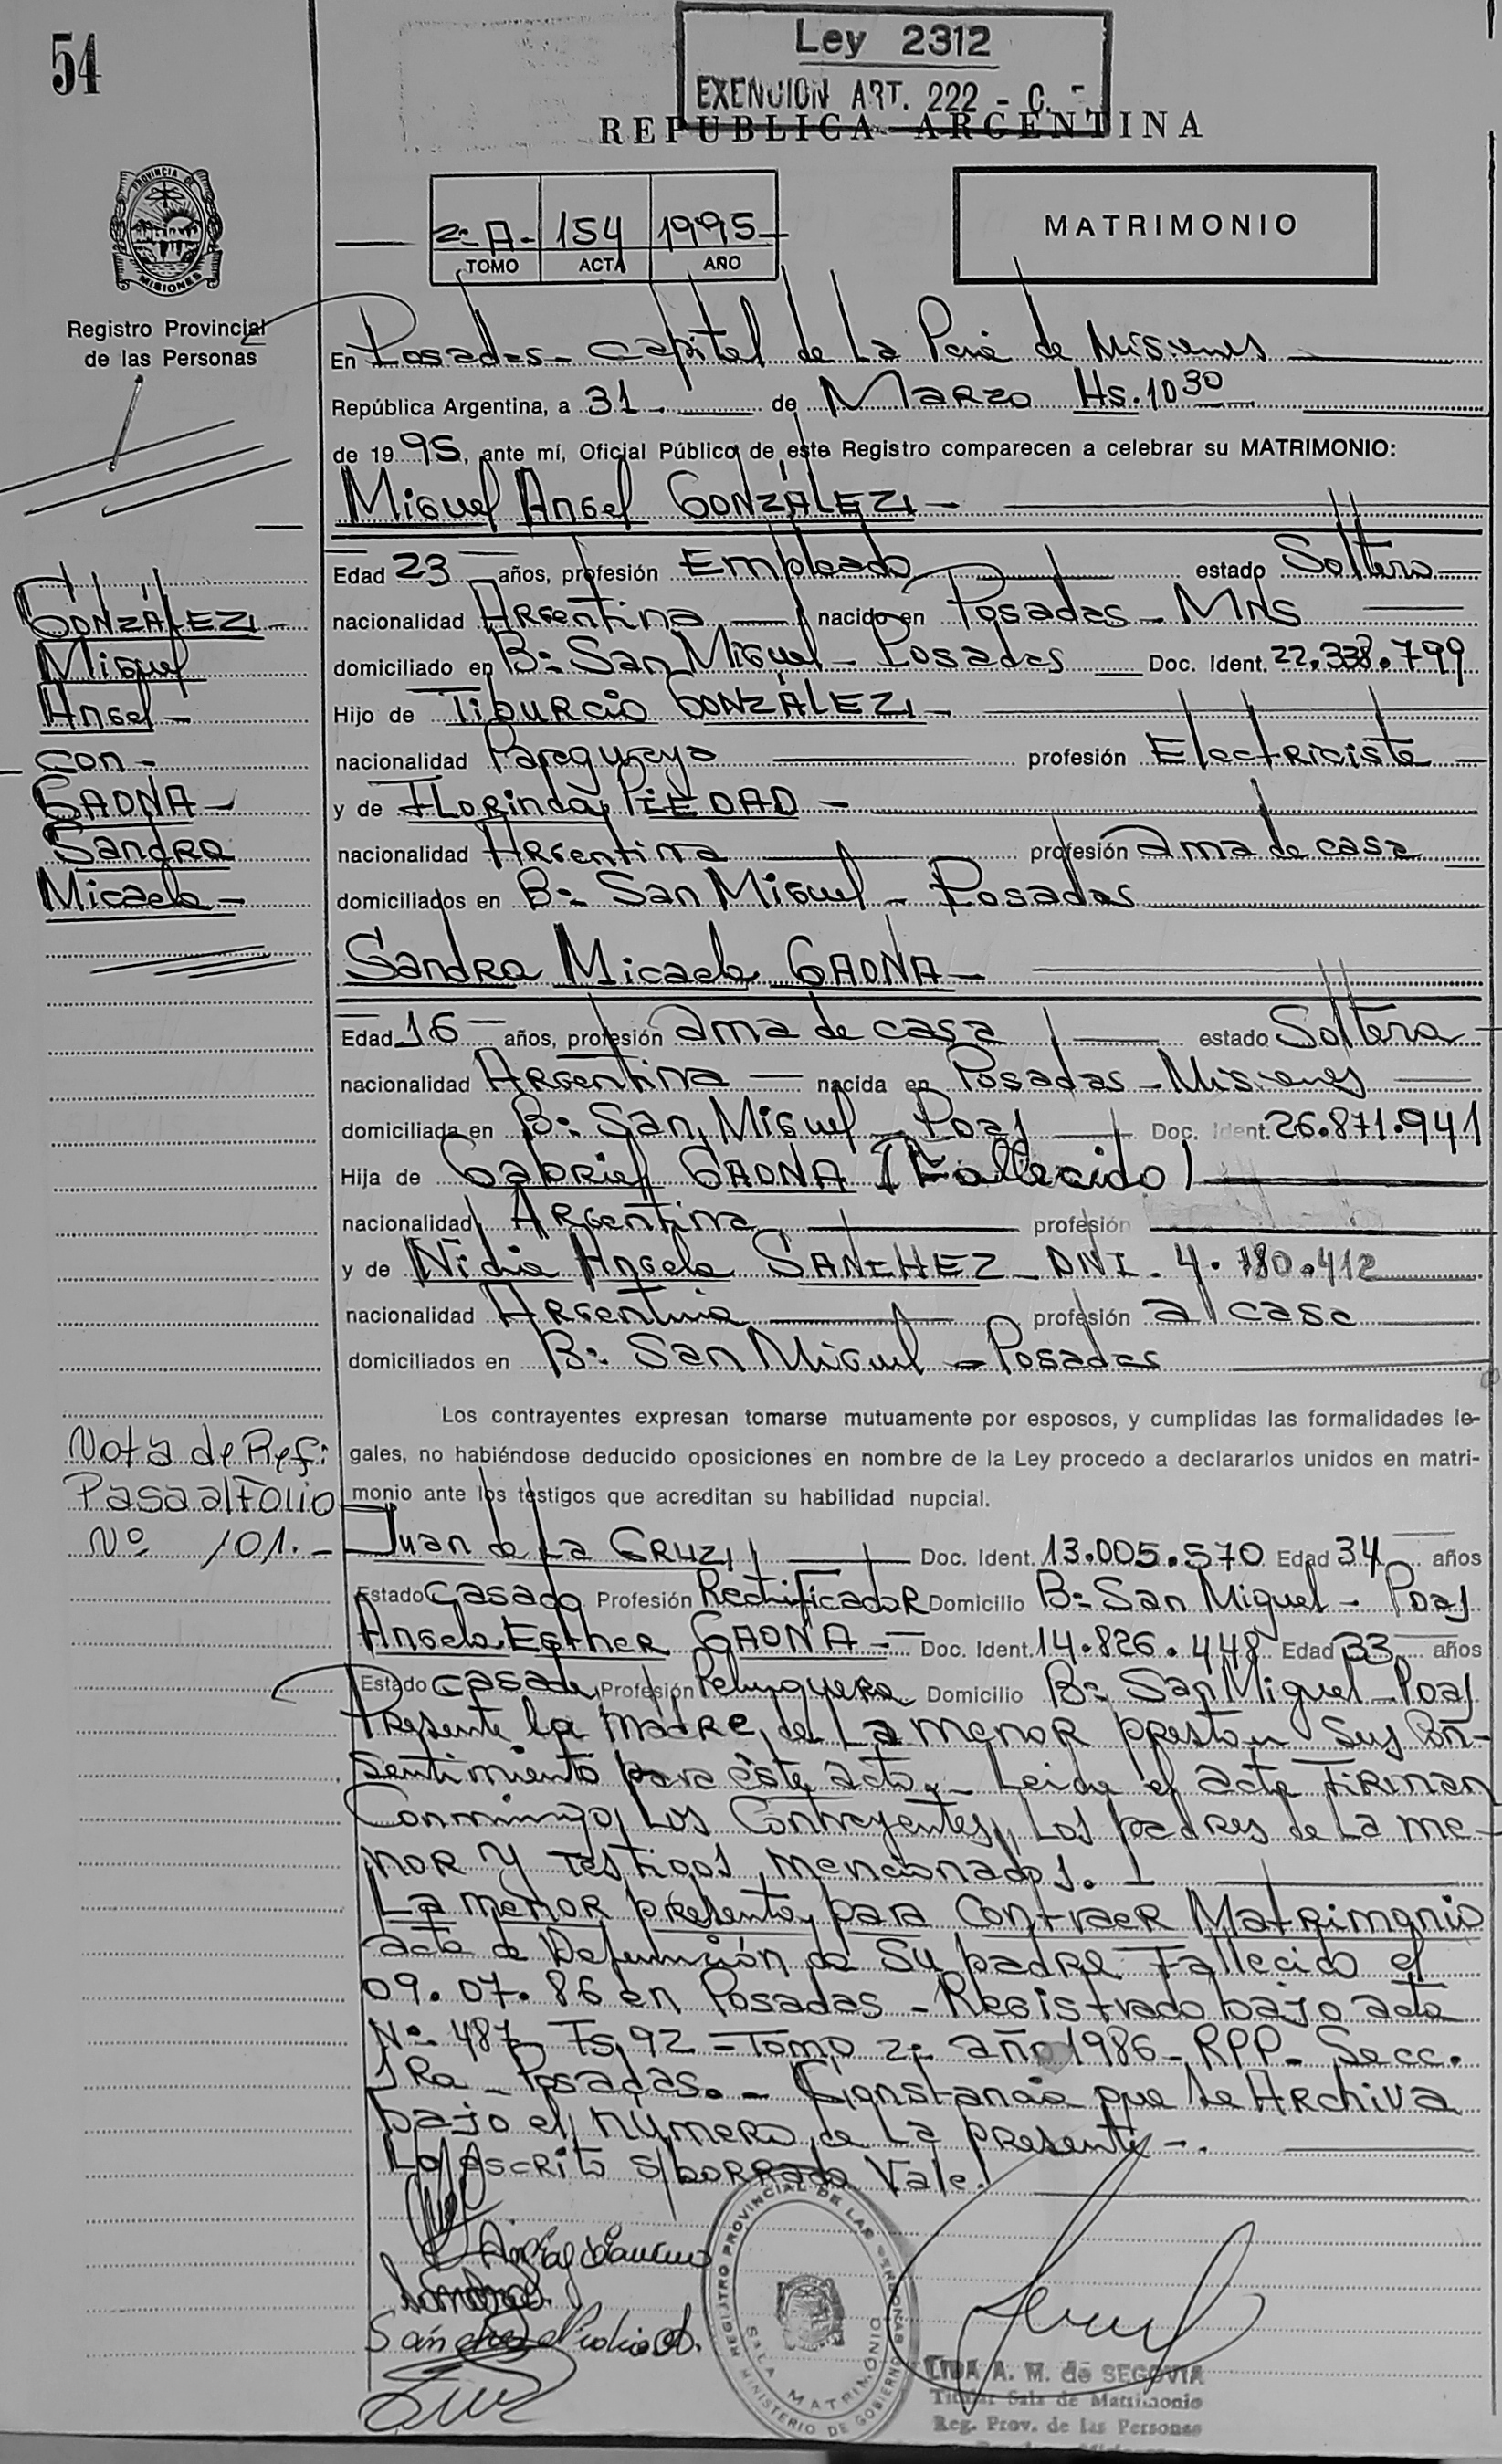 54
Ley 2312
EXENCION ART. 222 - C.
REPUBLICA ARGENTINA
PROVINCIA DE
MISIONES
Registro Provincial
de las Personas
2º A - 154 1995
TOMO ACTA AÑO
MATRIMONIO
En Posadas - Capital de La Pcia de Misiones
República Argentina, a 31 - de Marzo Hs. 10 30
de 1995, ante mí, Oficial Público de este Registro comparecen a celebrar su MATRIMONIO:
Miguel Angel GONZÁLEZ -
Edad 23 años, profesión Empleado estado Soltero
nacionalidad Argentina nacido en Posadas - Mns
domiciliado en Bº San Miguel - Posadas Doc. Ident. 22.338.799
Hijo de Tiburcio GONZÁLEZ -
nacionalidad Paraguaya profesión Electricista
y de Florinda PIEDAD -
nacionalidad Argentina profesión ama de casa
domiciliados en Bº San Miguel - Posadas
GONZÁLEZ -
Miguel
Angel -
con -
GAONA -
Sandra
Micaela -
Sandra Micaela GAONA -
Edad 16 años, profesión ama de casa estado Soltera
nacionalidad Argentina - nacida en Posadas - Misiones
domiciliada en Bº San Miguel - Pdas Doc. Ident. 26.871.941
Hija de Gabriel GAONA (Fallecido)
nacionalidad Argentina profesión
y de Nidia Angela SANCHEZ - DNI. 4.780.412
nacionalidad Argentina profesión a/casa
domiciliados en Bº San Miguel - Posadas
Los contrayentes expresan tomarse mutuamente por esposos, y cumplidas las formalidades le-
gales, no habiéndose deducido oposiciones en nombre de la Ley procedo a declararlos unidos en matri-
monio ante los testigos que acreditan su habilidad nupcial.
Nota de Ref:
Pasa al Folio
Nº 101. -
Juan de La CRUZ Doc. Ident. 13.005.570 Edad 34 años
Estado Casado Profesión Rectificador Domicilio Bº San Miguel - Pdas
Angela Esther GAONA - Doc. Ident. 14.826.448 Edad 33 años
Estado casada Profesión Peluquera Domicilio Bº San Miguel - Pdas
Presente la madre de La menor prestan sus Con-
sentimiento para éste acto. - Leida el acta Firman
Conmigo, Los Contrayentes, Los padres de La me-
nor y testigos mencionados. -
La menor presenta para Contraer Matrimonio
acta de Defunción de Su padre Fallecido el
09.07.86 en Posadas - Registrado bajo acta
Nº 487 Fs. 92 - Tomo 2º año 1986 - RPP - Secc.
1Ra - Posadas. - Constancia que se Archiva
bajo el número de La presente - .
Lo escrito s/borrado Vale.
Sandra
Sanchez Nidia A.
REGISTRO PROVINCIAL DE LAS PERSONAS
SALA MATRIMONIO
MINISTERIO DE GOBIERNO
LIDA A. M. de SEGOVIA
Titular Sala de Matrimonio
Reg. Prov. de las Personas